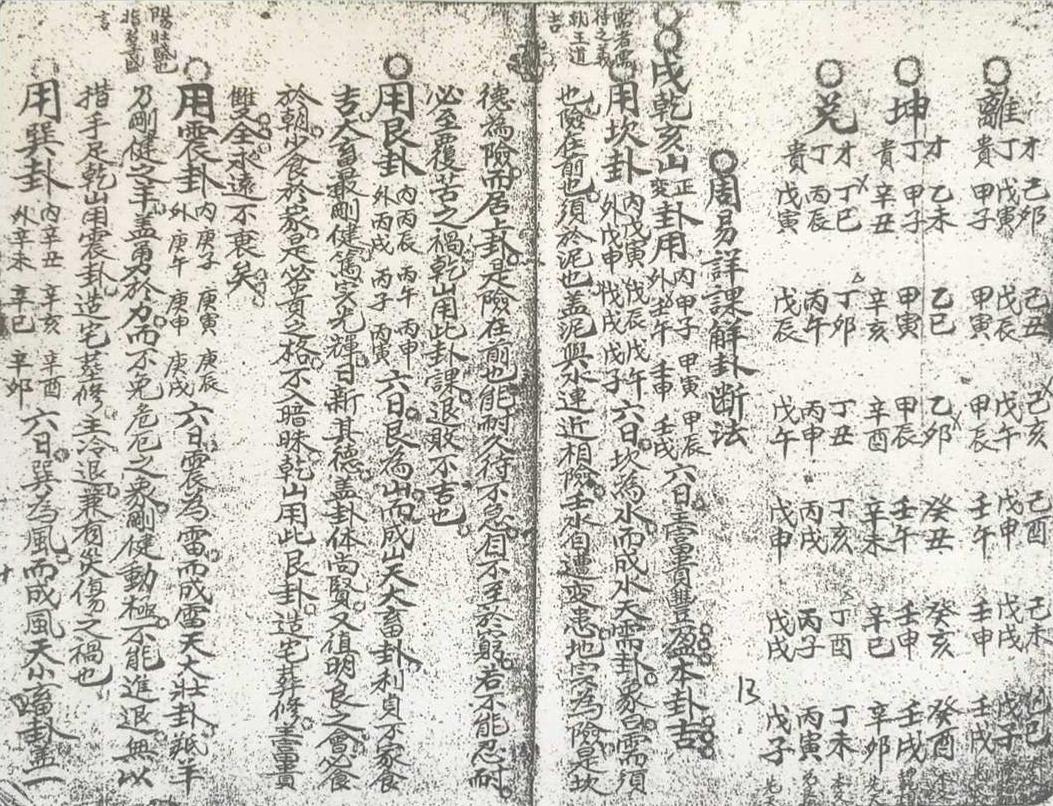 離
才 己卯 己丑 己亥 己酉 己未 己巳
丁 戊寅 戊辰 戊午 戊申 戊戌 戊子
貴 甲子 甲寅 甲辰 壬午 壬申 壬戌
坤
才 乙未 乙巳 乙卯 癸丑 癸亥 癸酉
丁 甲子 甲寅 甲辰 壬午 壬申 壬戌
貴 辛丑 辛亥 辛酉 辛未 辛巳 辛卯
兌
才 丁巳 丁卯 丁丑 丁亥 丁酉 丁未
丁 丙辰 丙午 丙申 丙戌 丙子 丙寅
貴 戊寅 戊辰 戊午 戊申 戊戌 戊子
周易詳課解卦断法
13
戌乾亥山正变卦用内甲子 甲寅 甲辰外壬午 壬申 壬戌六曰主富貴豐盈本卦吉
用坎卦内戊寅 戊辰 戊午外戊申 戊戌 戊子六曰坎為水而成水天需卦彖曰需須
也險在前也須於泥也盖泥與水連近相險壬水自遭变患地穴為險是坎
德為險而居上卦是險在前也能耐久待不急自不至於窮若不能忍耐
必至覆苦之禍乾山用此卦課退敗不吉也
用艮卦内丙辰 丙午 丙申外丙戌 丙子 丙寅六曰艮為山而成山天大畜卦利貞不家食
吉大畜最剛健篤实光輝日新其德盖卦体尚賢又值明良之會必食
於朝少食於家是必貴之格不入暗昧乾山用此艮卦造宅葬修主富貴
雙全永遠不衰矣
陽壯盛也
用震卦内庚子 庚寅 庚辰外庚午 庚申 庚戌六曰震為雷而成雷天大壯卦羝羊
乃剛健之羊盖勇於力而不免危厄之象剛健動極不能進退無以
措手足乾山用震卦造宅葬修主冷退兼有災傷之禍也
用巽卦内辛丑 辛亥 辛酉外辛未 辛巳 辛卯六曰巽為風而成風天小畜卦盖一